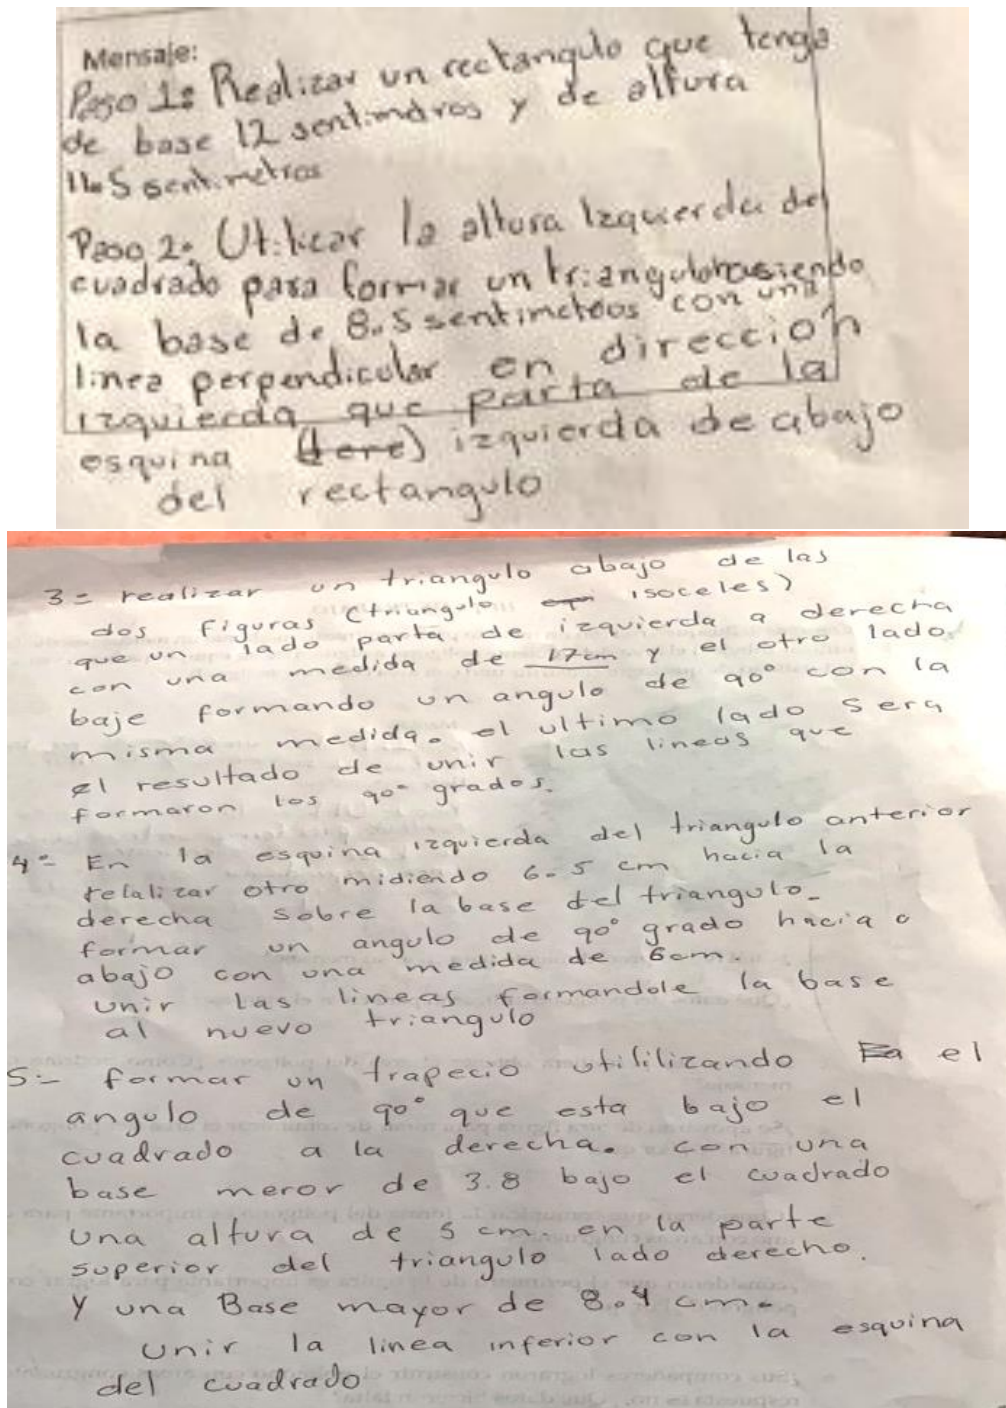 Mensaje:
Paso 1: Realizar un rectangulo que tenga
de base 12 sentimetros y de altura
11.5 sentimetros
Paso 2: Utilicar la altura Izquierda del
cuadrado para formar un triangulo hasiendo
la base de 8.5 sentimetros con una
linea perpendicular en dirección
izquierda que parta de la
esquina izquierda de abajo
del rectangulo
3= realizar un triangulo abajo de las
dos figuras (triangulo isoceles)
que un lado parta de izquierda a derecha
con una medida de 17cm y el otro lado
baje formando un angulo de 90° con la
misma medida. el ultimo lado sera
el resultado de unir las lineas que
formaron los 90° grados.
4= En la esquina izquierda del triangulo anterior
relalizar otro midiendo 6.5 cm hacia la
derecha sobre la base del triangulo.
formar un angulo de 90° grado hacia a
abajo con una medida de 6cm.
unir las lineas formandole la base
al nuevo triangulo
5:- formar un trapecio utililizando el
angulo de 90° que esta bajo el
cuadrado a la derecha. con una
base meror de 3.8 bajo el cuadrado
una altura de 5 cm. en la parte
superior del triangulo lado derecho.
Y una Base mayor de 8.4 cm.
unir la linea inferior con la esquina
del cuadrado